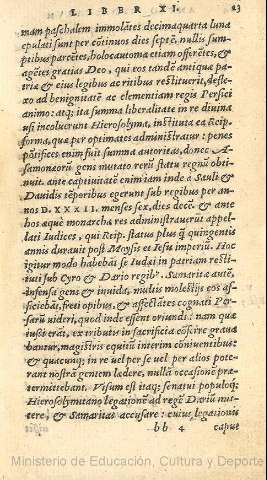 LIBER XI. 23
mam paschalem immolātes decimaquarta luna
epulati sunt per cōtinuos dies septē, nullis sum-
ptibus parcētes, holocautoma etiam offerētes, &
agētes gratias Deo, qui eos tandē antiquæ pa-
triæ & eius legibus ac ritibus restituerit, defle-
xo ad benignitatē ac clementiam regis Persici
animo: atq; ita summa liberalitate in re diuina
usi incoluerunt Hierosolyma, instituta ea Reip.
forma, quæ per optimates administratur: penes
pōtifices enim fuit summa autoritas, donec A-
samonæorū gens mutato rerū statu regnū obti-
nuit. ante captiuitatē enim iam inde à Saule &
Dauidis tēporibus egerunt sub regibus per an-
nos D. XXXII, menses sex, dies decē. & ante
hos æquè monarchæ res administrauerūt appel-
lati Iudices, qui Reip. status plus q̃ quingentis
annis durauit post Moysis et Iesu imperiū. Hoc
igitur modo habebāt se Iudæi in patriam resti-
tuti sub Cyro & Dario regibꝰ. Samaritæ autē,
infensa gens & inuida, multis molestijs eos af-
ficiebāt, freti opibus, & affectātes cognati Per-
sarū uideri, quòd inde essent oriundi: nam quæ
iussi erāt, ex tributis in sacrificia cōferre graua
bantur, magistris equitū interim coniuentibus:
& quacunq; in re uel per se uel per alios pote-
rant nostrā gentem lædere, nullā occasionē præ-
termittebant. Visum est itaq; senatui populoq;
Hierosolymitano legationē ad regē Dariū mit-
tere, & Samaritas accusare: cuius legationis
bb 4 caput
Ministerio de Educación, Cultura y Deporte